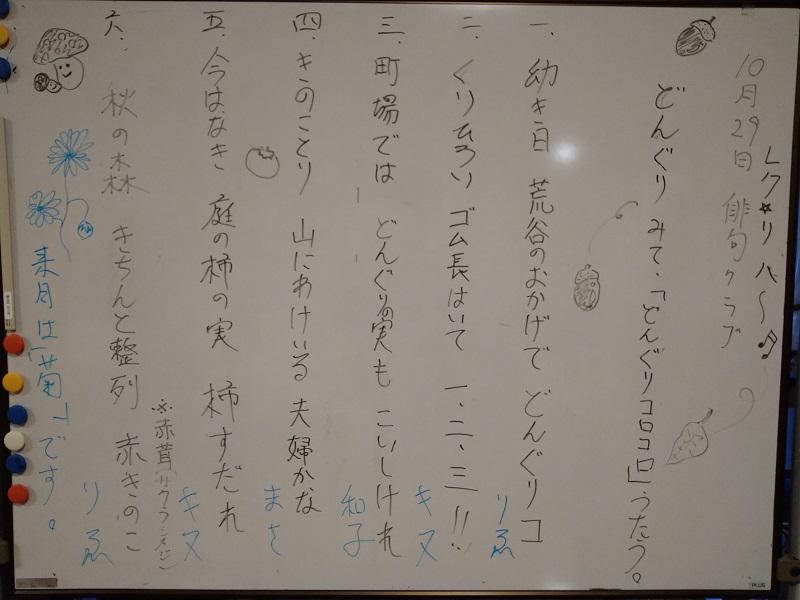 レク☆リハ〜♬
10月29日 俳句クラブ
どんぐりみて・「どんぐりコロコロ」うたう。
一、幼き日 荒谷のおかげで どんぐりコ りゑ
二、くりひろい ゴム長はいて 一、二、三!! キヌ
三、町場では どんぐりの実も こいしけれ 和子
四、きのことり 山にわけいる 夫婦かな まさ
五、今はなき 庭の柿の実 柿すだれ キヌ
※赤茸(サクラシメジ)
六、秋の森 きちんと整列 赤きのこ りゑ
来月は「菊」です。
PLUS